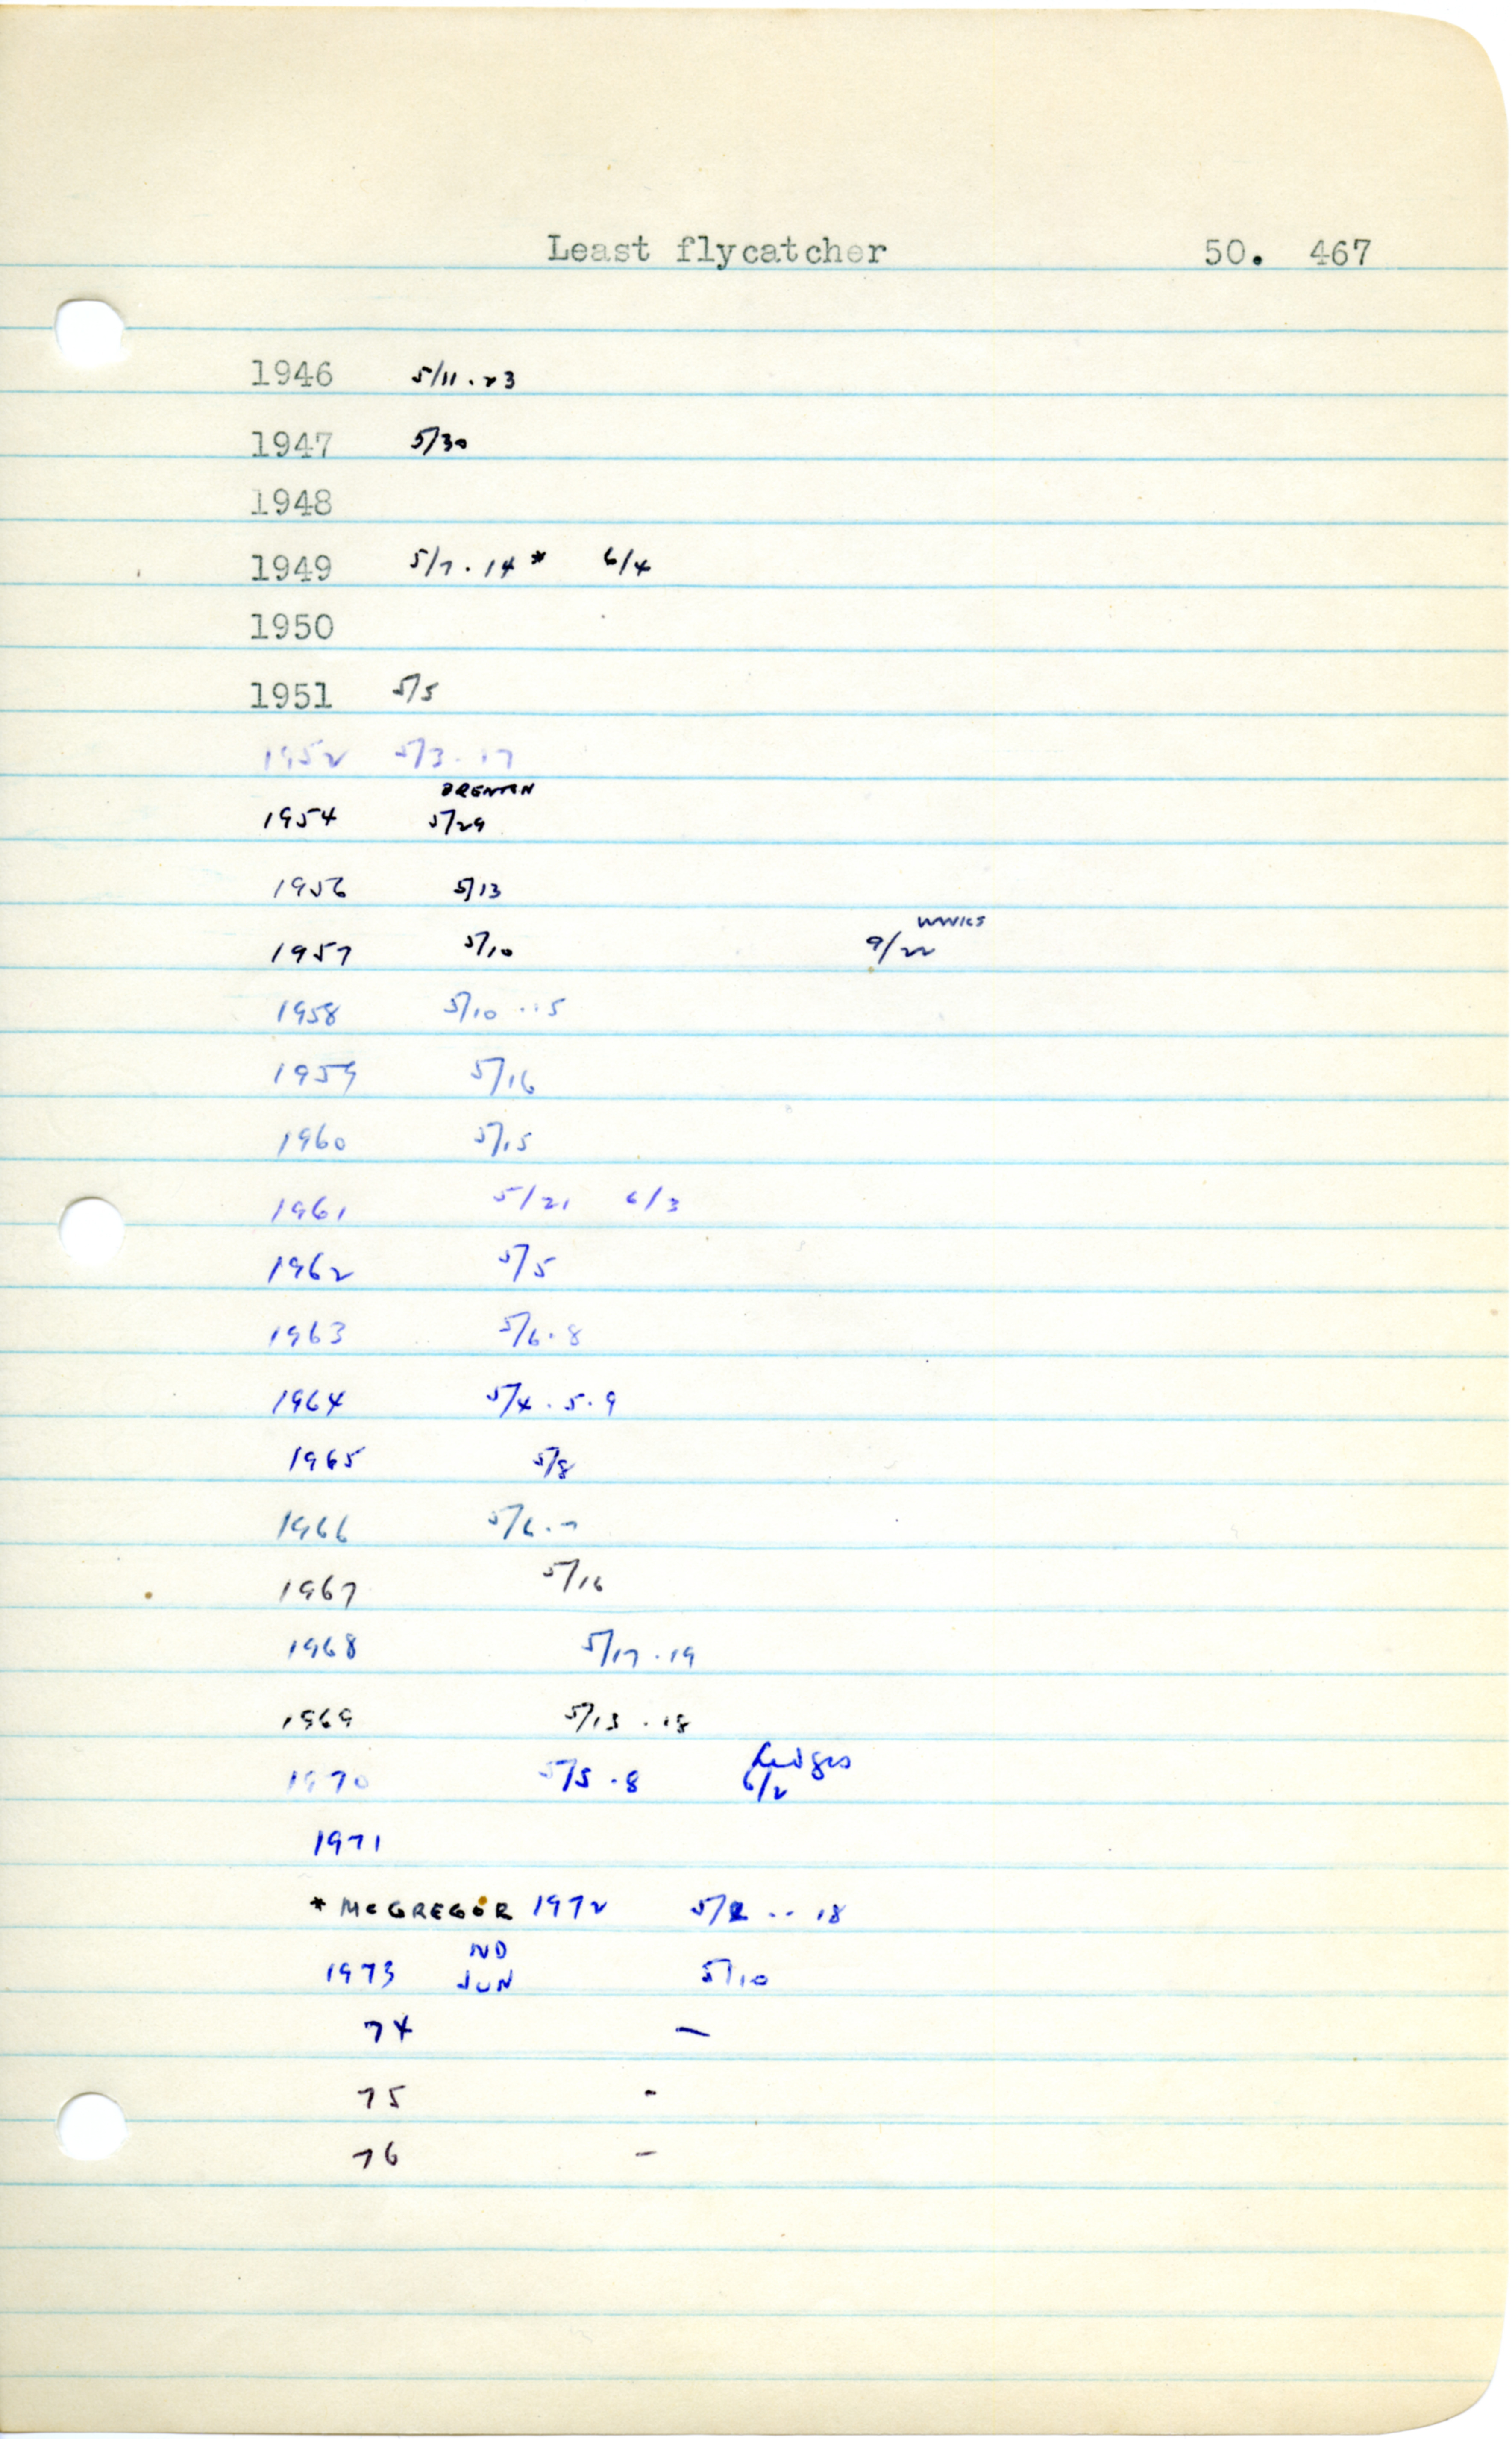 Least flycatcher 50. 467
1946 5/11 . 23
1947 5/30
1948
1949 5/7 . 14 * 6/4
1950
1951 5/5
1952 5/3 . 17
1954 5/29
1956 5/13
1957 5/10 9/22
1958 5/10 ... 5
1959 5/16
1960 5/15
1961 5/21 6/3
1962 5/5
1963 5/6 . 8
1964 5/4 . 5 . 9
1965 5/8
1966 5/6 . 7
1967 5/16
1968 5/17 . 19
1969 5/13 . 18
Ledges
1970 5/5 . 8 6/2
1971
* McGREGOR 1972 5/2 .. 18
ND
1973 JUN 5/10
74 —
75 -
76 —